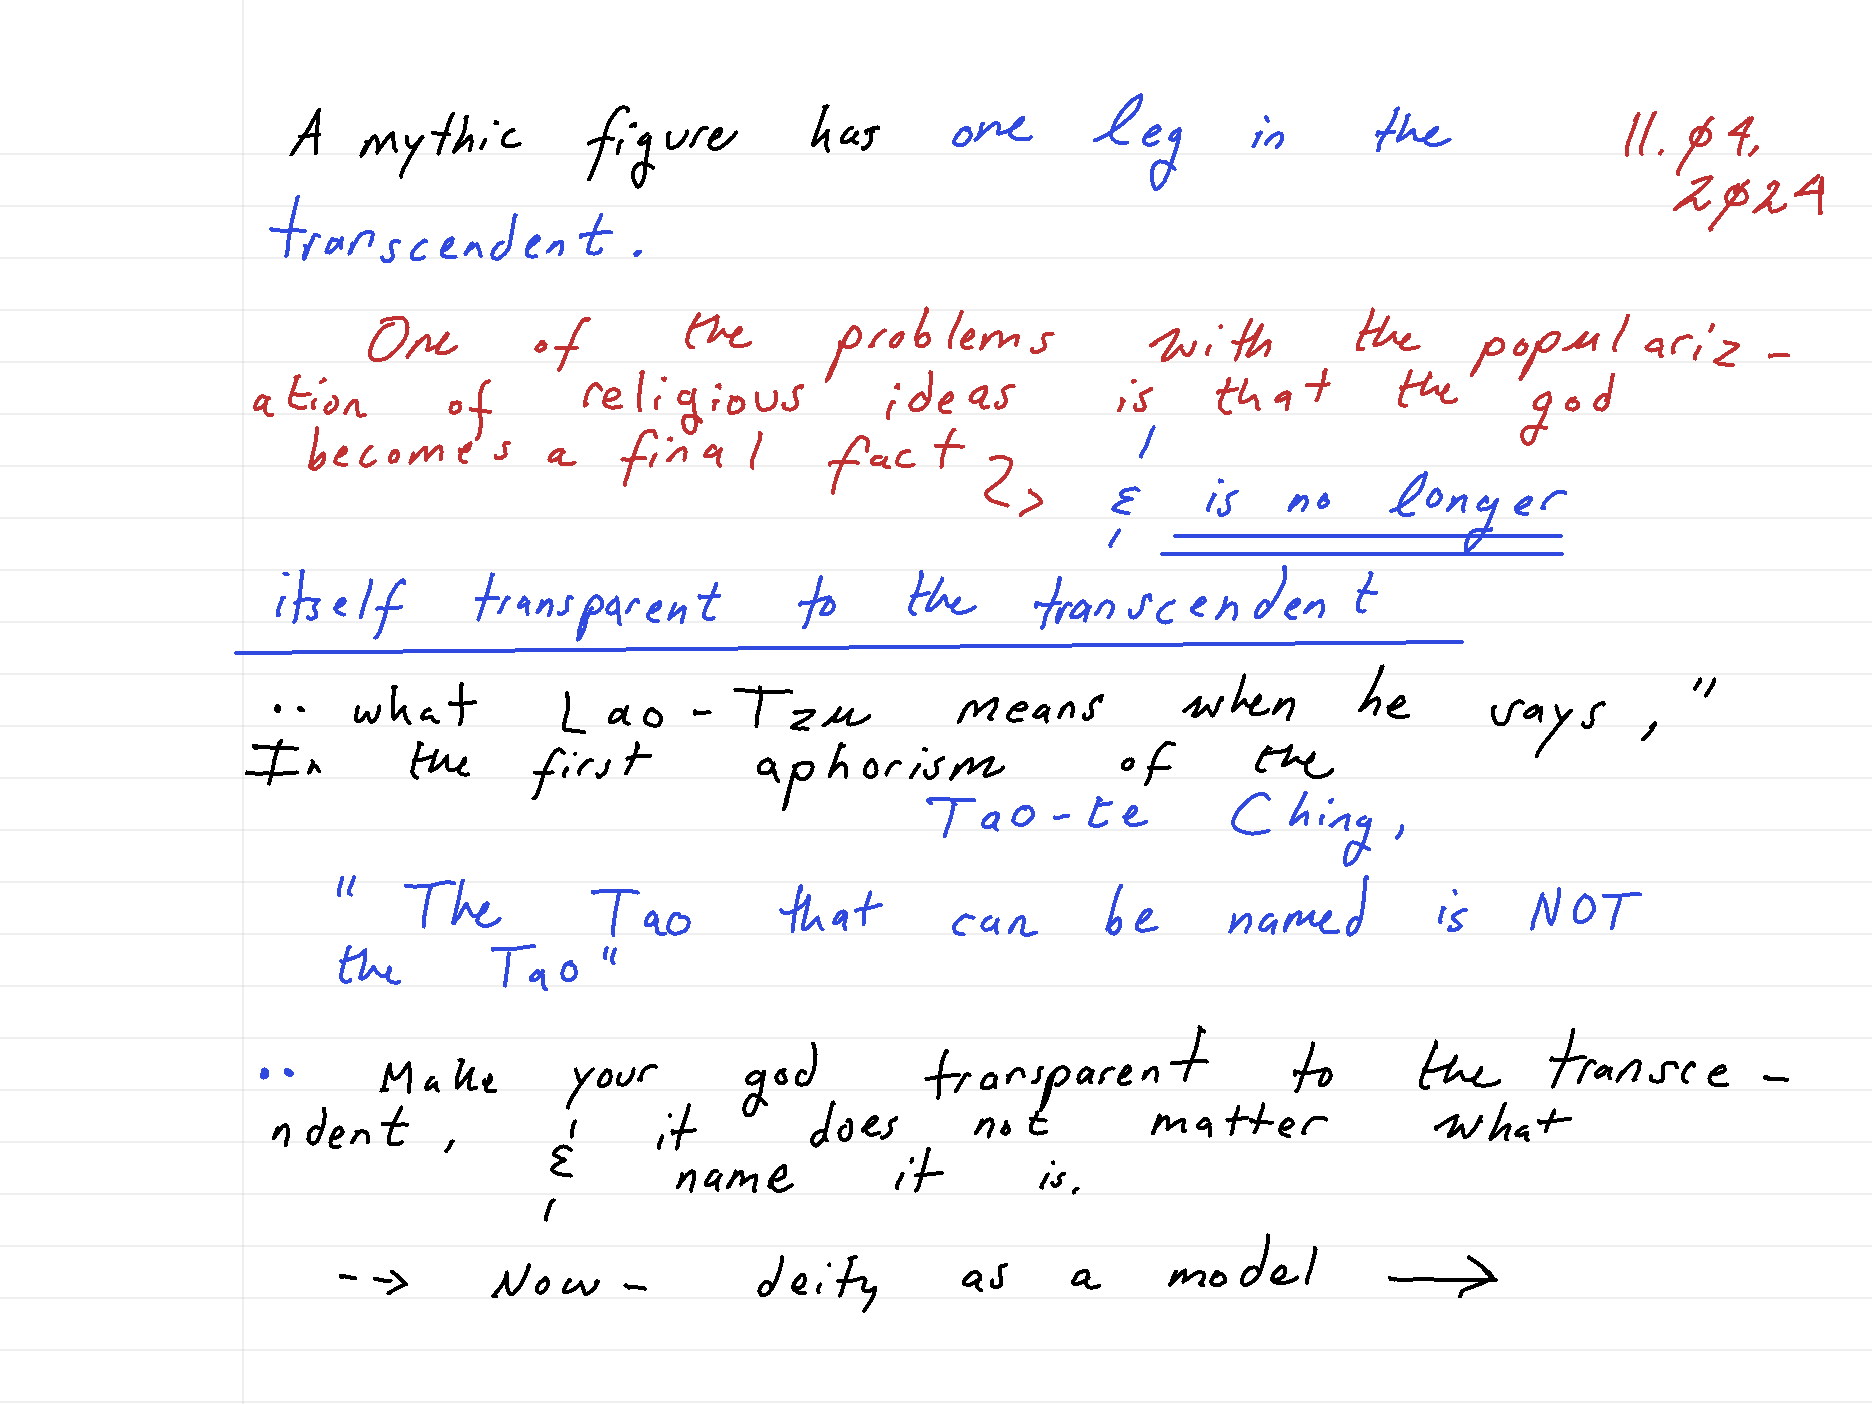 A mythic figure has one leg in the
11.ø4,
2ø24
transcendent.
One of the problems with the populariz-
ation of religious ideas is that the god
becomes a final fact
& is no longer
itself transparent to the transcendent
·· what Lao-Tzu means when he says,"
In the first aphorism of the
Tao-te Ching,
"The Tao that can be named is NOT
the Tao"
·· Make your god transparent to the transce-
ndent, & it does not matter what
name it is.
--> Now- deity as a model →